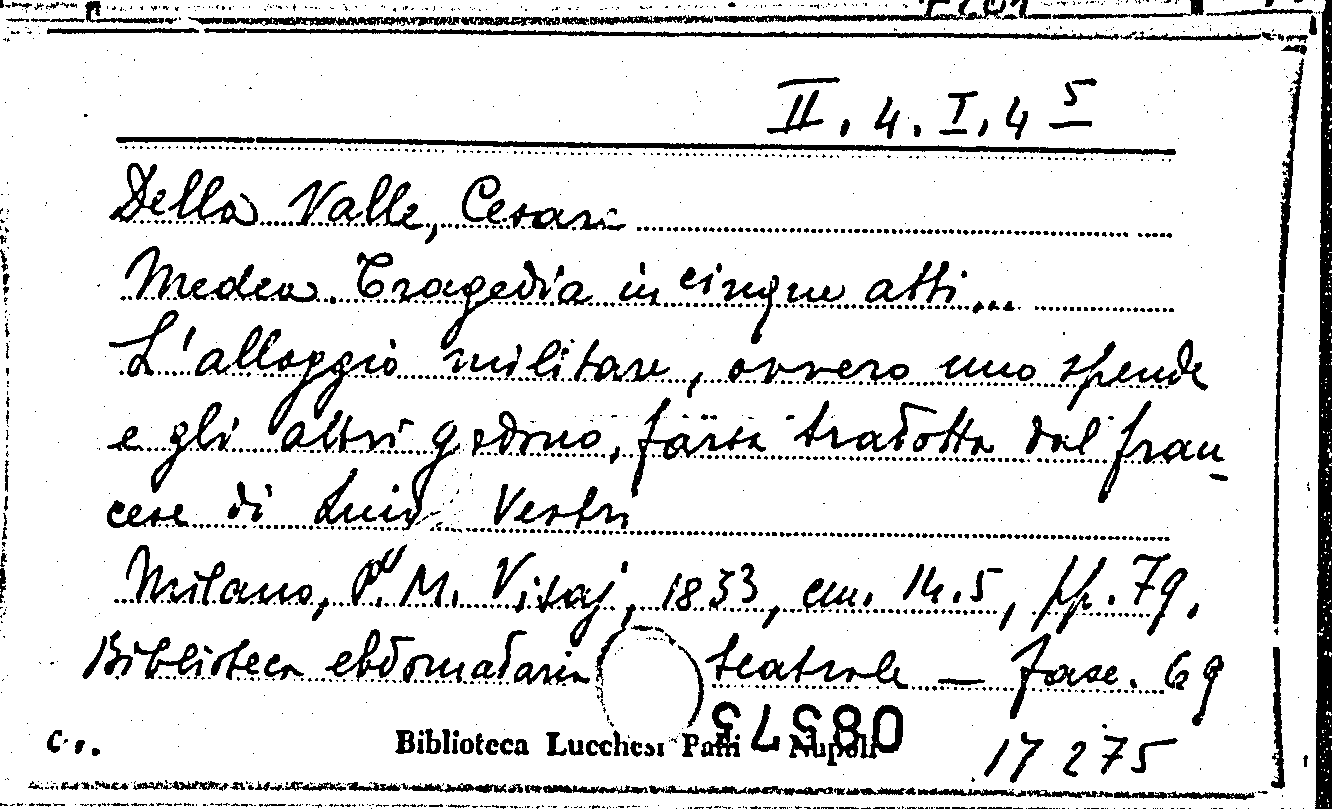 II. 4. I. 4 5
Della Valle, Cesare
Medea. Tragedia in cinque atti...
L'alloggio militare, ovvero uno spende
e gli altri godono, farsa tradotta dal fran-
cese di Luigi Vestri
Milano, P. M. Visaj, 1833, cm. 14.5, pp. 79.
Biblioteca ebdomadaria teatrale — fasc. 69
c.r. Biblioteca Lucchesi Palli Napoli 17275